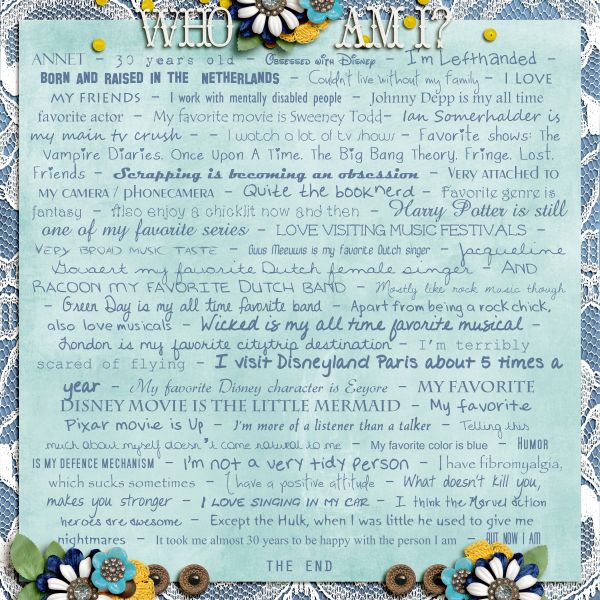 WHO AM I?
ANNET – 30 years old – Obsessed with Disney – I'm Lefthanded –
BORN AND RAISED IN THE NETHERLANDS – Couldn't live without my family – I LOVE
MY FRIENDS – I work with mentally disabled people – Johnny Depp is my all time
favorite actor – My favorite movie is Sweeney Todd– Ian Somerhalder is
my main tv crush – – I watch a lot of tv shows – Favorite shows: The
Vampire Diaries, Once Upon A Time, The Big Bang Theory, Fringe, Lost,
Friends – Scrapping is becoming an obsession – Very attached to
my camera / phonecamera – Quite the booknerd – Favorite genre is
fantasy – Also enjoy a chicklit now and then – Harry Potter is still
one of my favorite series – LOVE VISITING MUSIC FESTIVALS –
Very broad music taste – Guus Meeuwis is my favorite Dutch singer – Jacqueline
Govaert my favorite Dutch female singer – AND
RACOON MY FAVORITE DUTCH BAND – Mostly like rock music though
– Green Day is my all time favorite band – Apart from being a rock chick,
also love musicals – Wicked is my all time favorite musical –
London is my favorite citytrip destination – I'm terribly
scared of flying – I visit Disneyland Paris about 5 times a
year – My favorite Disney character is Eeyore – MY FAVORITE
DISNEY MOVIE IS THE LITTLE MERMAID – My favorite
Pixar movie is Up – I'm more of a listener than a talker – Telling this
much about myself doesn't come natural to me – My favorite color is blue – Humor
is my defence mechanism – I'm not a very tidy person – I have fibromyalgia,
which sucks sometimes – I have a positive attitude – What doesn't kill you,
makes you stronger – I LOVE SINGING IN MY CAR – I think the Marvel action
heroes are awesome – Except the Hulk, when I was little he used to give me
nightmares – It took me almost 30 years to be happy with the person I am – BUT NOW I AM
THE END